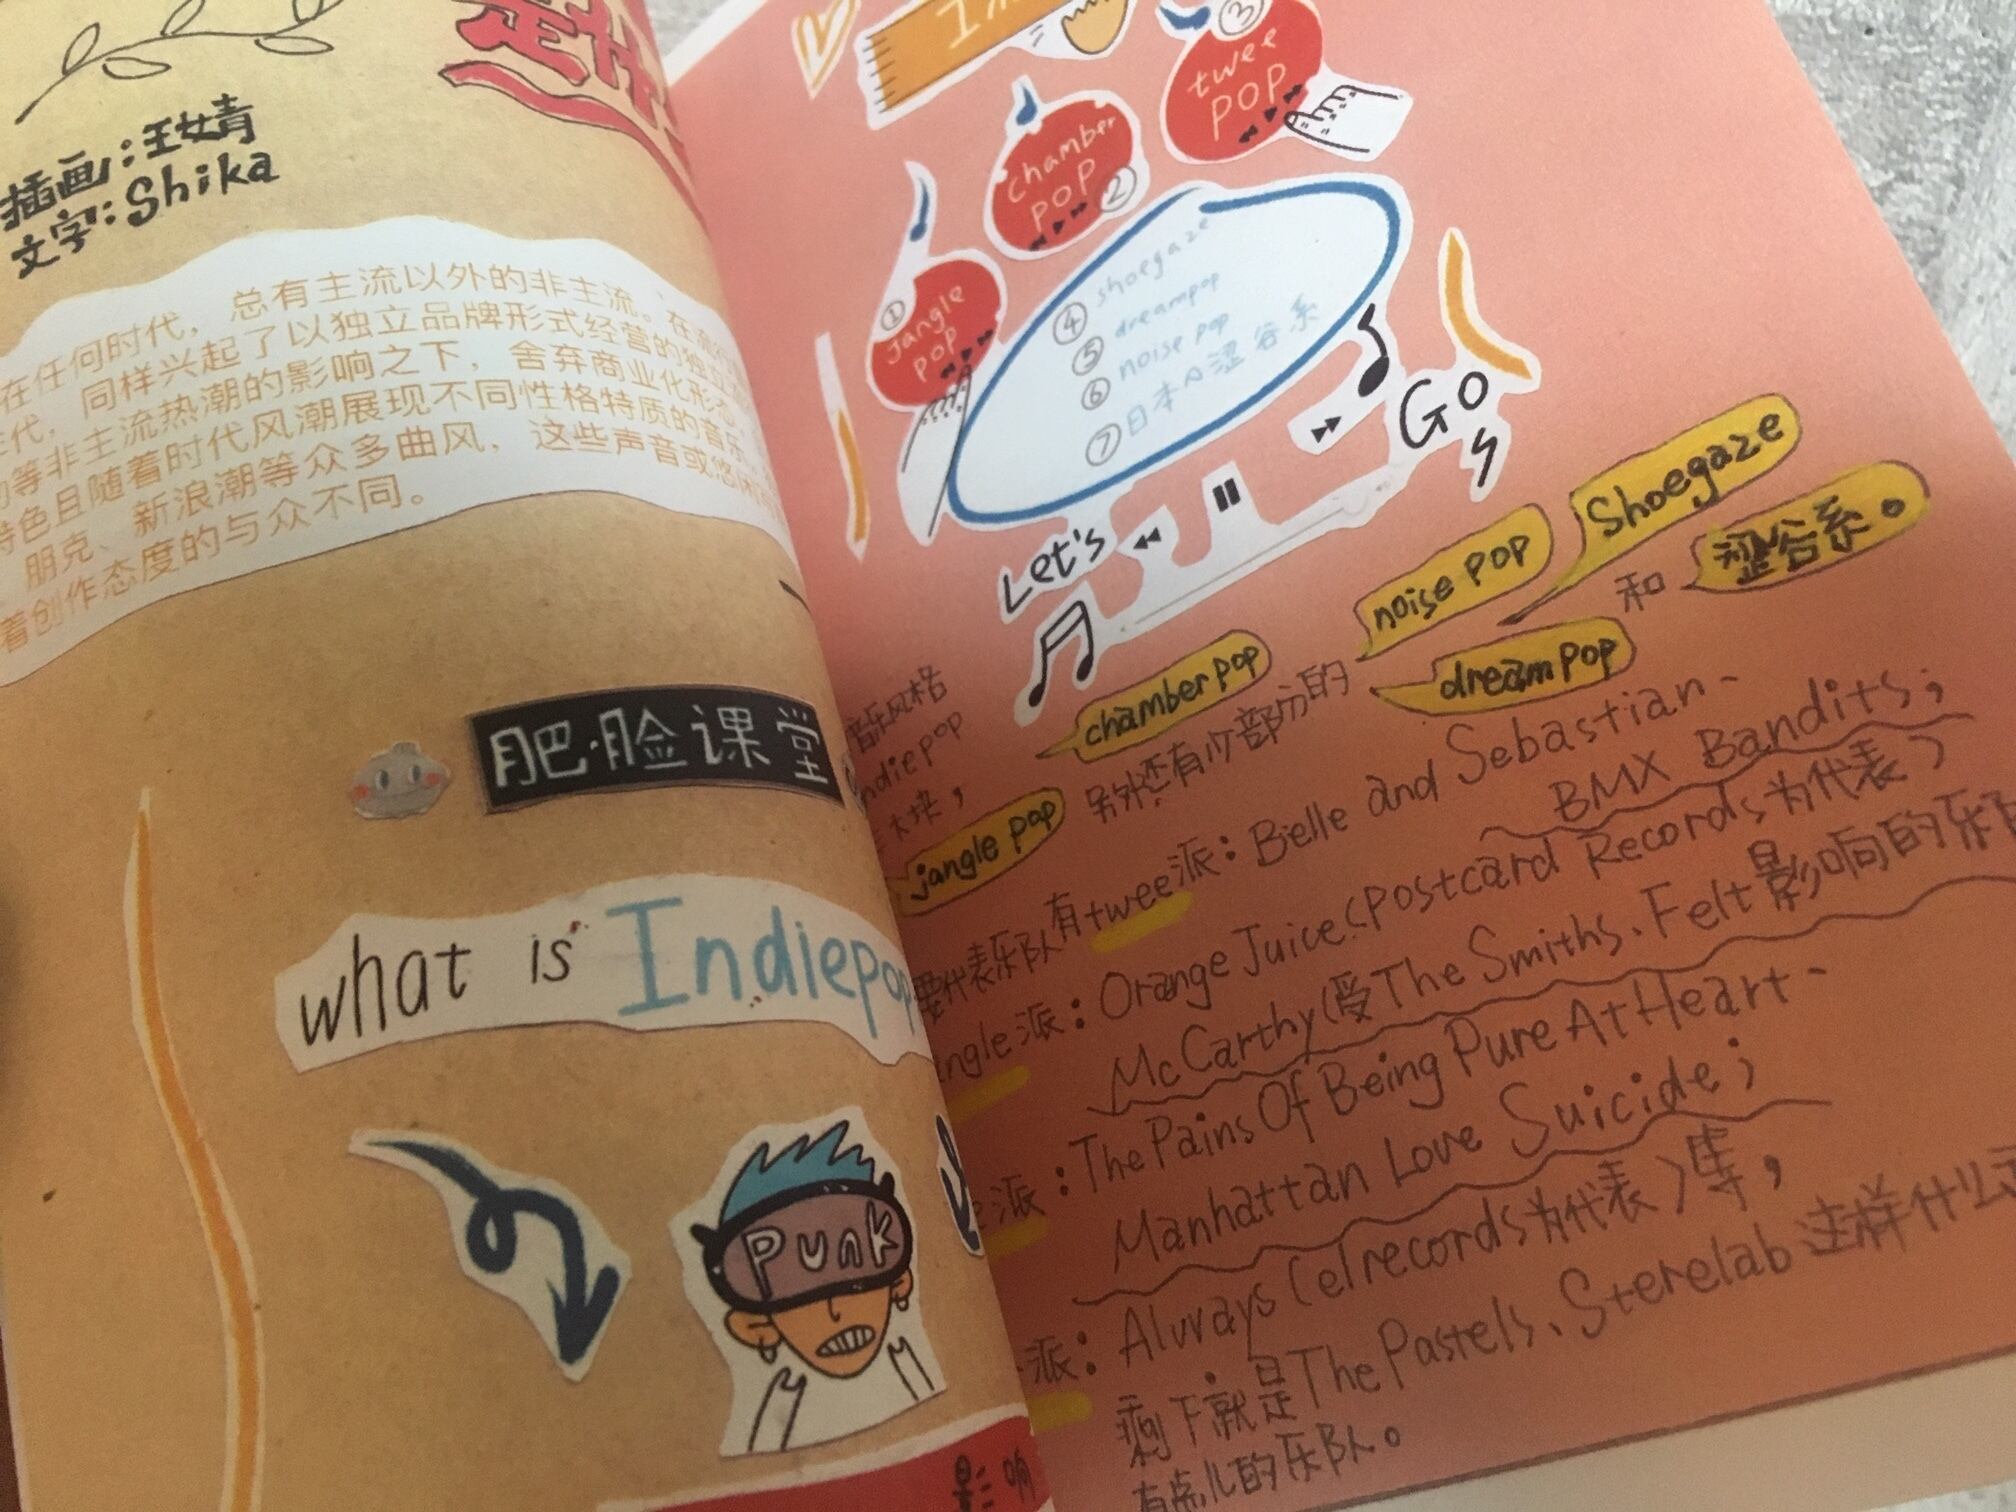 插画:王婧
文字:Shika
在任何时代,总有主流以外的非主流。在
代,同样兴起了以独立品牌形式经营的独立
等非主流热潮的影响之下,舍弃商业化形态
特色且随着时代风潮展现不同性格特质的音乐
朋克、新浪潮等众多曲风,这些声音或悠闲
着创作态度的与众不同。
肥脸课堂
what is Indiepop
Punk
影响
③ twee POP
chamber POP ②
① jangle POP
④ shoegaze
⑤ dreampop
⑥ noise pop
⑦ 日本的涩谷系
Let's
GO
音乐风格
ndiepop
jangle pop
chamber pop
另外还有少部分的
noise pop
Shoegaze
dream pop
和
涩谷系。
要代表乐队有twee派:Belle and Sebastian、
BMX Bandits;
ngle派:Orange Juice(Postcard Records为代表)
McCarthy(受The Smiths、Felt影响的乐队
e派:The Pains Of Being Pure At Heart、
Manhattan Love Suicide;
派:Always(elrecords为代表)等,
剩下就是The Pastels、Sterelab这样什么
有点儿的乐队。